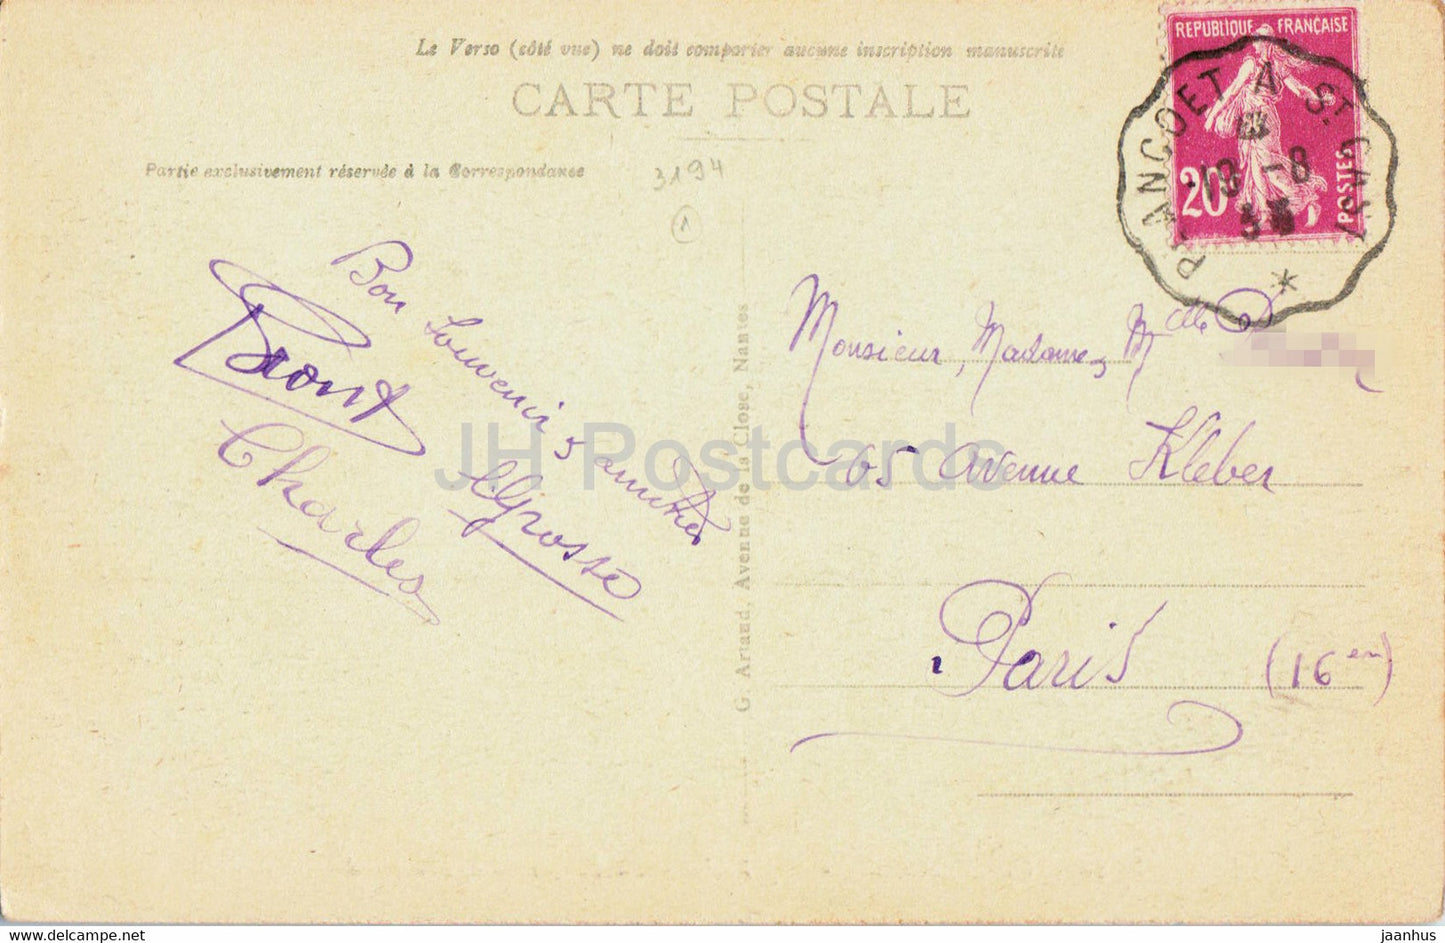 Le Verso (côté vue) ne doit comporter aucune inscription manuscrite
CARTE POSTALE
Partie exclusivement réservée à la Correspondance
3194
1
REPUBLIQUE FRANÇAISE
20c
POSTES
PLANCOET A ST CAST
18 -8
Bon Souvenir & amitiés
Charles
Monsieur, Madame, Mlle
65 Avenue Kleber
Paris (16em)
G. Artaud, Avenue de la Close, Nantes
JH Postcards
www.delcampe.net
jaanhus